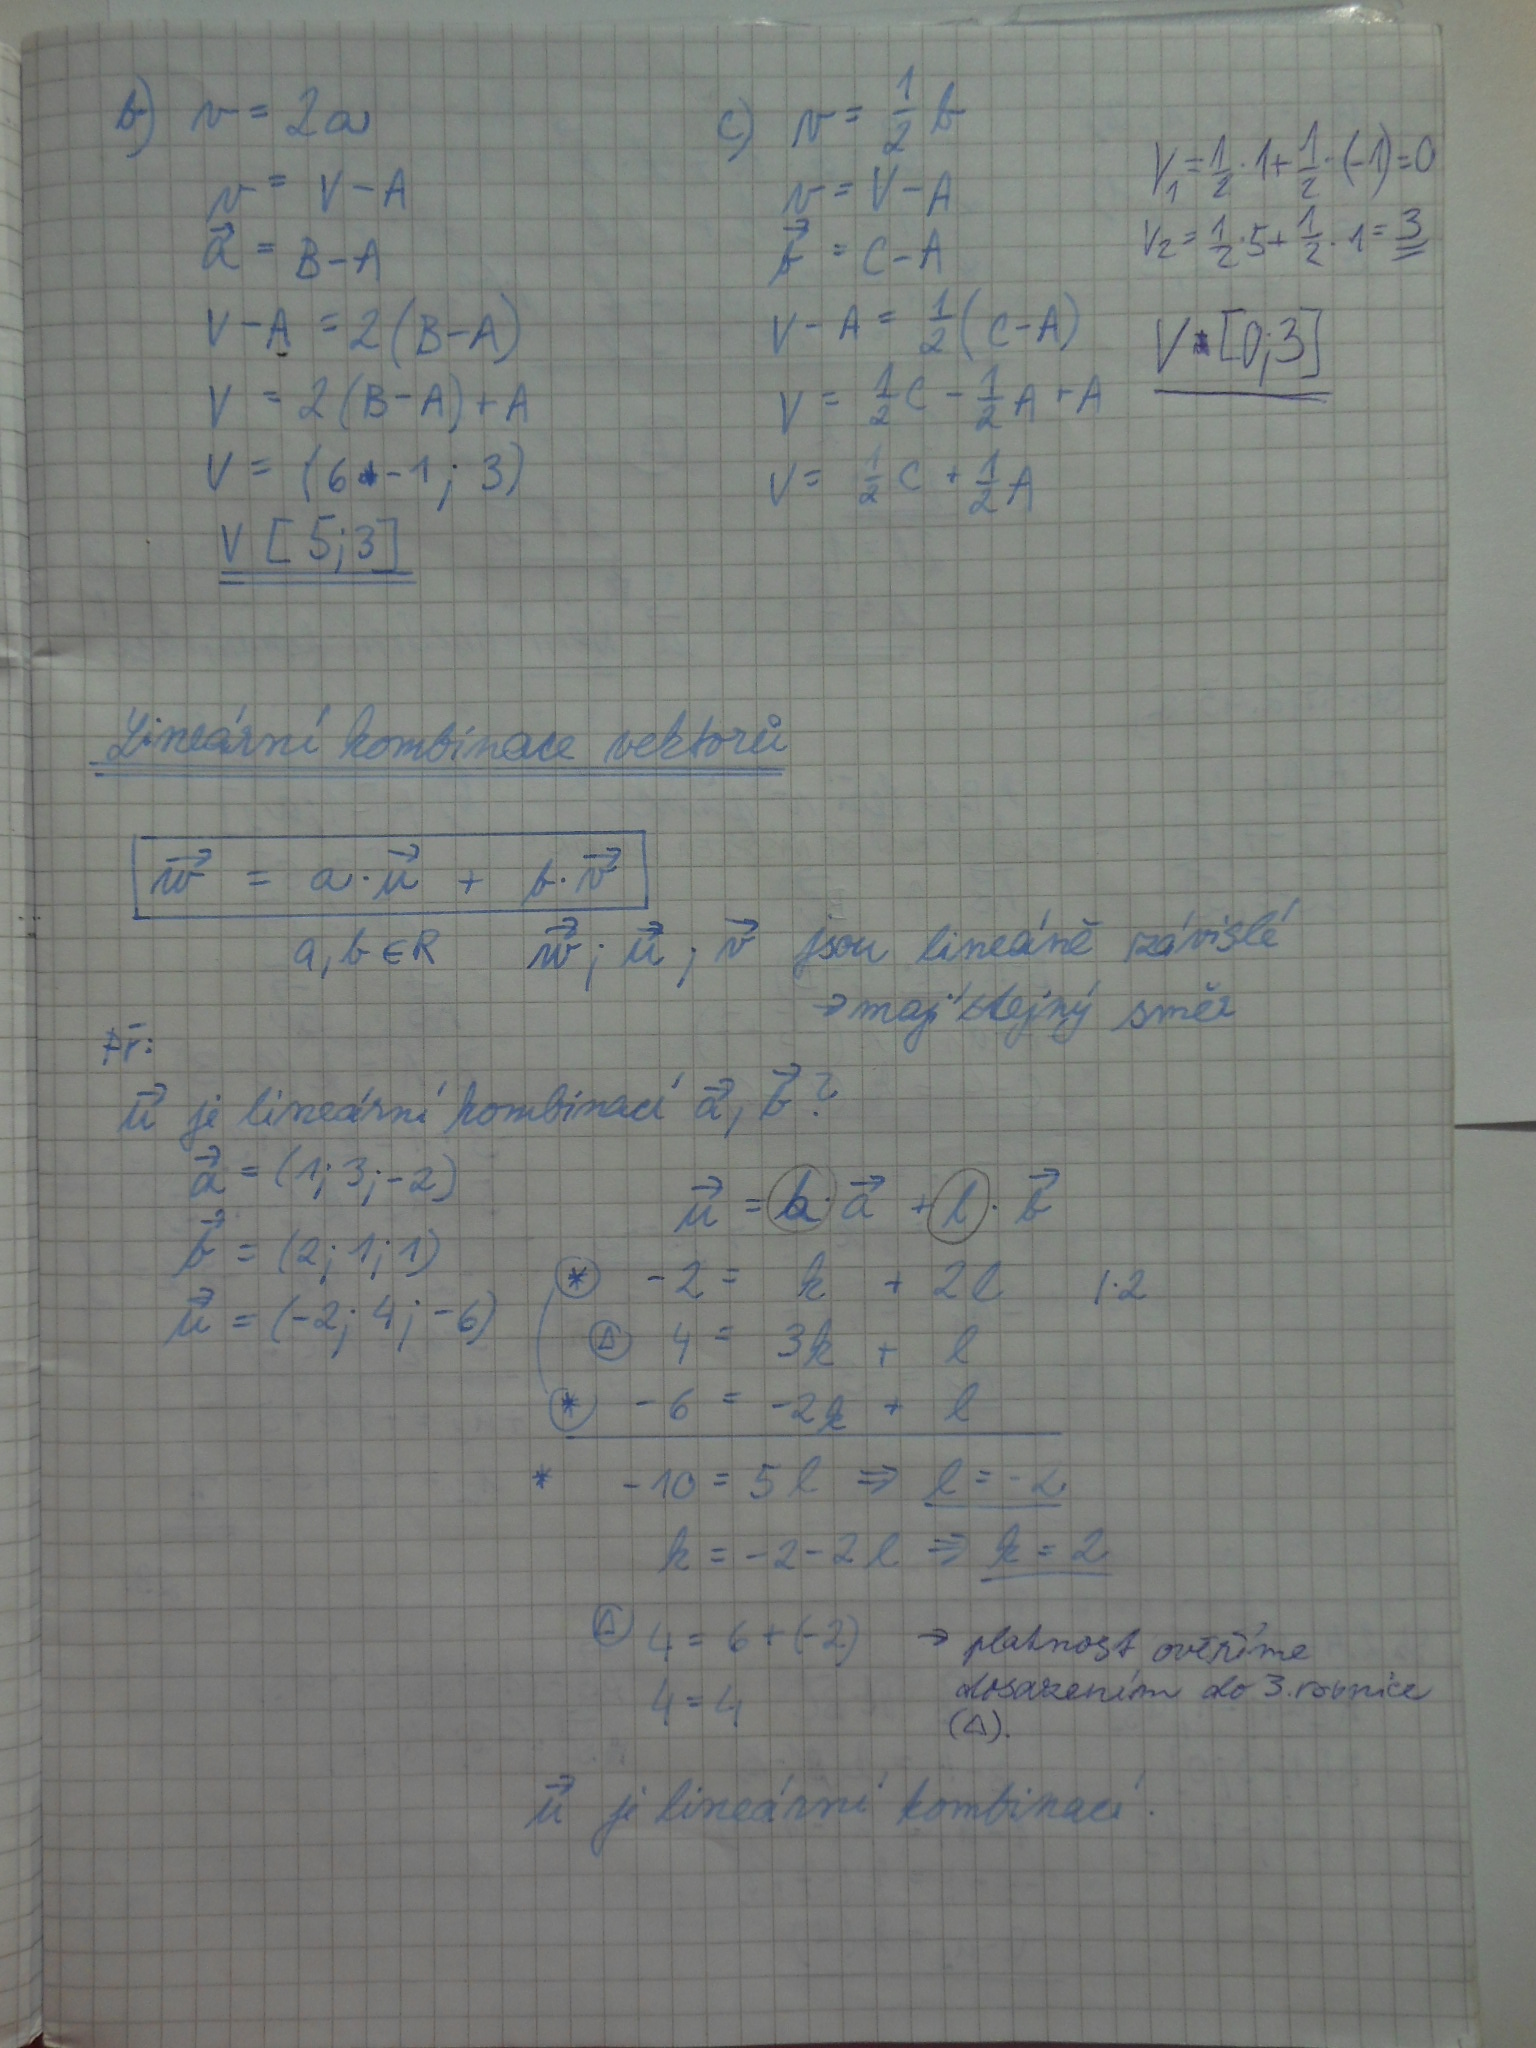 b) v = 2a
v = V - A
a⃗ = B - A
V - A = 2(B - A)
V = 2(B - A) + A
V = (6 + -1; 3)
V [5; 3]
c) v = 1/2 b
v = V - A
b⃗ = C - A
V - A = 1/2 (C - A)
V = 1/2 C - 1/2 A + A
V = 1/2 C + 1/2 A
V₁ = 1/2 · 1 + 1/2 · (-1) = 0
V₂ = 1/2 · 5 + 1/2 · 1 = 3
V [0; 3]
Lineární kombinace vektorů
w⃗ = a · u⃗ + b · v⃗
a, b ∈ R w⃗; u⃗; v⃗ jsou lineáně závislé
→ mají stejný směr
Př:
u⃗ je lineární kombinací a⃗, b⃗?
a⃗ = (1; 3; -2)
b⃗ = (2; 1; 1)
u⃗ = (-2; 4; -6)
u⃗ = k · a⃗ + l · b⃗
* -2 = k + 2l /·2
Δ 4 = 3k + l
* -6 = -2k + l
* -10 = 5l ⇒ l = -2
k = -2 - 2l ⇒ k = 2
Δ 4 = 6 + (-2) → platnost ověříme
4 = 4 dosazením do 3. rovnice
(Δ).
u⃗ je lineární kombinací.